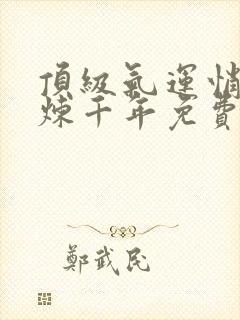 頂級氣運悄
煉千年免費
鄭武民